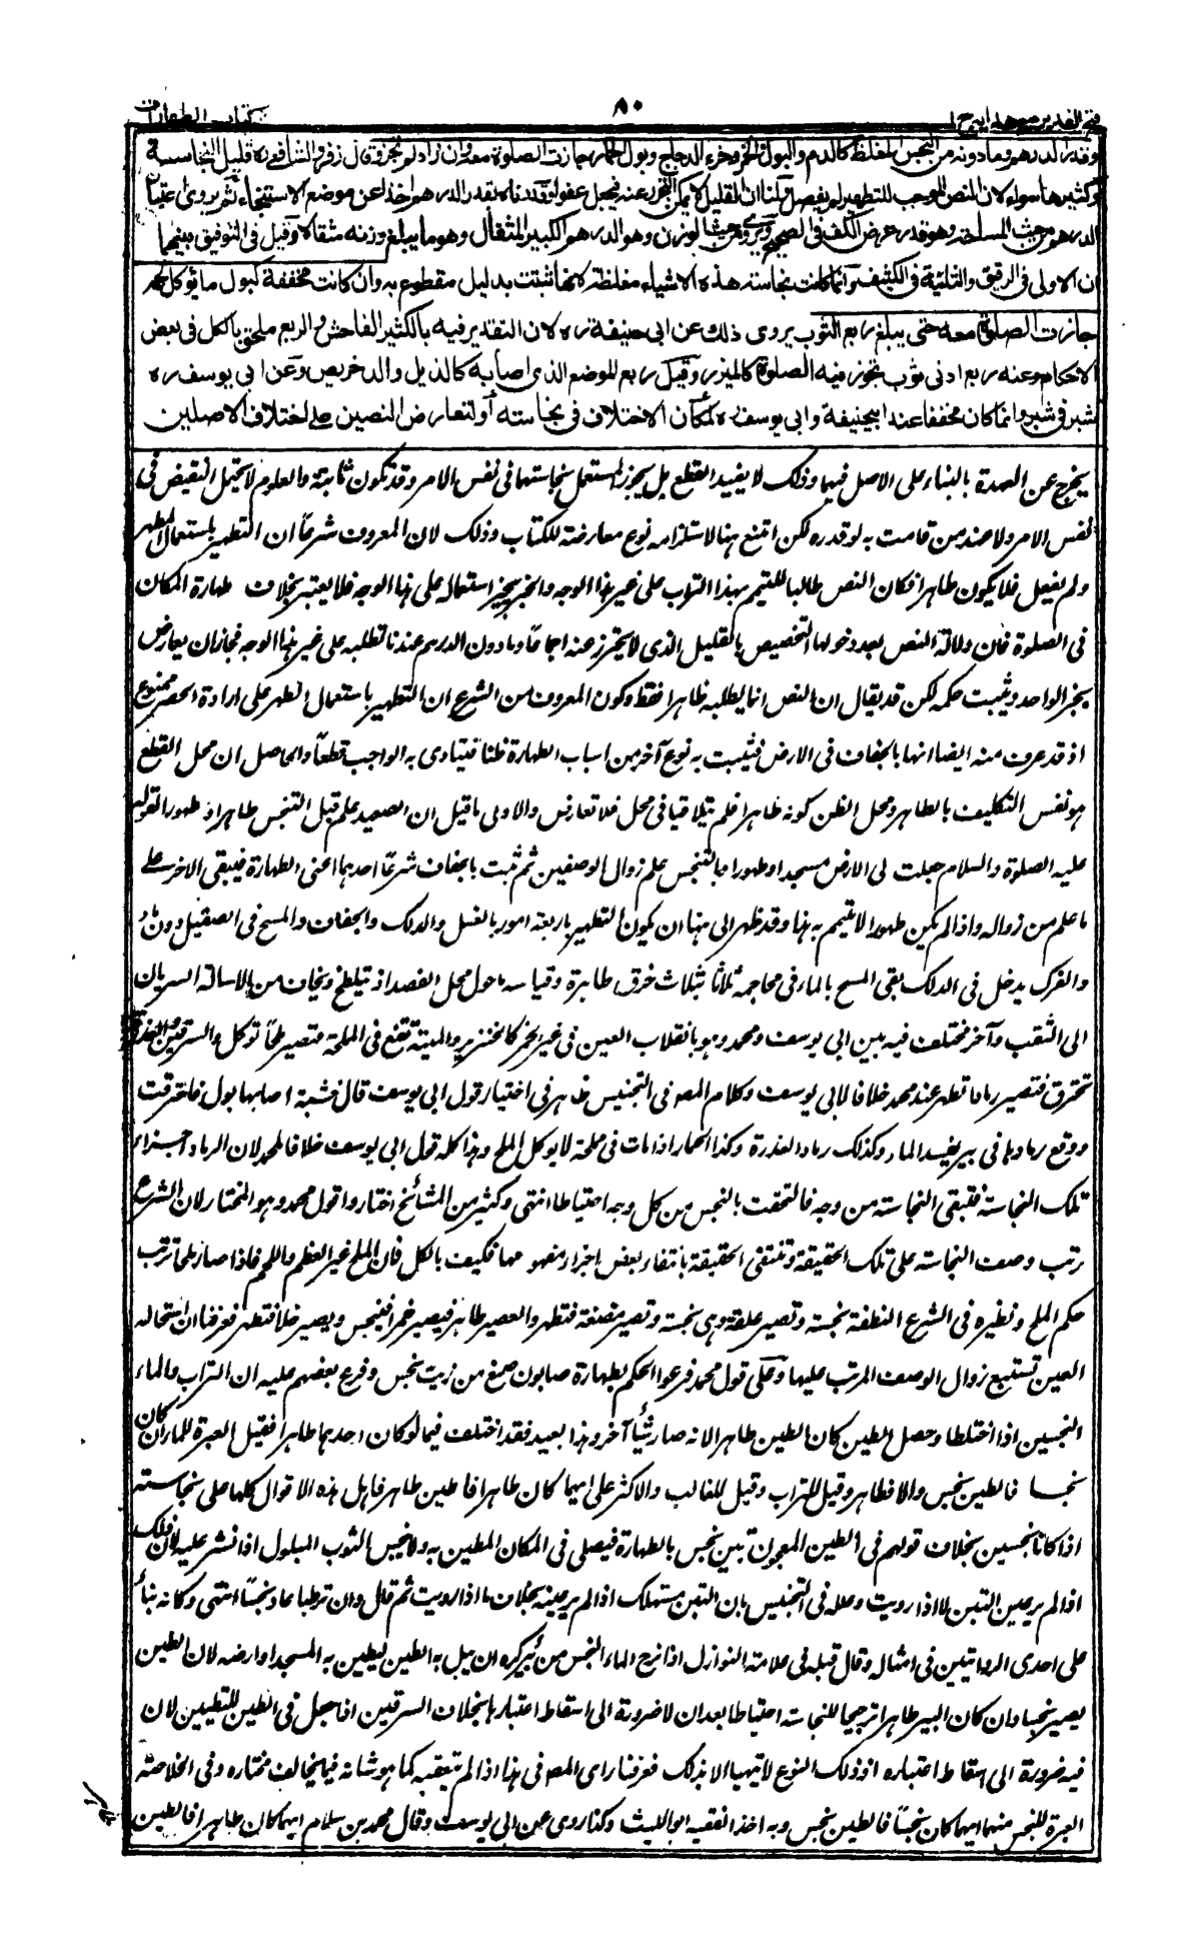 فتح القدير مع هدايه ج ١
٨٠
كتاب الطهارات
وقدر الدرهم وما دونه من النجس المغلظ كالدم والبول والخمر وخرء الدجاج وبول الحمار جازت الصلوة معه وان زاد لم تجز وقال زفر والشافعي ره قليل النجاسة
وكثيرها سواء لان النص الموجب للتطهير لم يفصل ولنا ان القليل لا يمكن التحرز عنه فيجعل عفوا وقدرناه بقدر الدرهم اخذا عن موضع الاستنجاء ثم يروى اعتبار
الدرهم من حيث المساحة وهو قدر عرض الكف في الصحيح ويروى من حيث الوزن وهو الدرهم الكبير المثقال وهو ما يبلغ وزنه مثقالا وقيل في التوفيق بينهما
ان الاولى في الرقيق والثانية في الكثيف وانما كانت نجاسة هذه الاشياء مغلظة لانها ثبتت بدليل مقطوع به وان كانت مخففة كبول ما يؤكل لحمه
جازت الصلوة معه حتى يبلغ ربع الثوب يروى ذلك عن ابي حنيفة ره لان التقدير فيه بالكثير الفاحش والربع ملحق بالكل في بعض
الاحكام وعنه ربع ادنى ثوب تجوز فيه الصلوة كالميزر وقيل ربع الموضع الذي اصابه كالذيل والدخريص وعن ابي يوسف ره
شبر في شبر وانما كان مخففا عند ابي حنيفة وابي يوسف ره لمكان الاختلاف في نجاسته أو لتعارض النصين على اختلاف الاصلين
يخرج عن العهدة بالبناء على الاصل فيها وذلك لا يفيد القطع بل يجوز المستعمل نجاستها في نفس الامر وقد تكون ثابتة والعلوم لا تحتمل النقيض في
نفس الامر ولا عند من قامت به لو قدره لكن امتنع هنا لاستلزامه نوع معارضة للكتاب وذلك لان المعروف شرعا ان التطهير باستعمال المطهر
ولم يفعل فلا يكون طاهرا فكان النص طالبا للتيمم بهذا التراب على غير هذا الوجه والخبر يجيز استعماله على هذا الوجه فلا يعتبر بخلاف طهارة المكان
في الصلوة فان دلالة النص بعد دخولها التخصيص بالقليل الذي لا يحترز عنه اجماعا وما دون الدرهم عندنا تطلبه على غير هذا الوجه فجاز ان يعارض
بخبر الواحد ويثبت حكمه لكن قد يقال ان النص انما يطلبه طاهرا فقط وكون المعروف من الشرع ان التطهير باستعمال المطهر على ارادة الحصر ممنوع
اذ قد عرف منه ايضا انها بالجفاف في الارض فيثبت به نوع آخر من اسباب الطهارة ظنا فيتادى به الواجب قطعا والحاصل ان محل القطع
هو نفس التكليف بالطاهر ومحل الظن كونه طاهرا فلم يتلاقيا في محل فلا تعارض والاولى ما قيل ان الصعيد علم قبل التنجس طاهرا وطهورا لقوله
عليه الصلوة والسلام جعلت لي الارض مسجدا وطهورا وبالتنجس علم زوال الوصفين ثم ثبت بالجفاف شرعا احدهما اعني الطهارة فيبقى الاخر على
ما علم من زواله واذا لم يكن طهورا لا يتيمم به هذا وقد ظهر الى هنا ان يكون التطهير باربعة امور بالغسل والدلك والجفاف والمسح في الصقيل دون ماء
والفرك يدخل في الدلك بقي المسح بالماء في محاجمه ثلاثا بثلاث خرق طاهرة وقياسه ما حول محل الفصد اذ تيلطخ ويخاف من الاسالة السريان
الى الثقب وآخر مختلف فيه بين ابي يوسف ومحمد وهو بانقلاب العين في غير الخمر كالخنزير والميتة تقع في المملحة فتصير ملحا تؤكل والسرقين والعذرة
تحترق فتصير رمادا تطهر عند محمد خلافا لابي يوسف وكلام المصـ في التجنيس ظاهر في اختيار قول ابي يوسف قال خشبة اصابها بول فاحترقت
ووقع رمادها في بير يفسد الماء وكذلك رماد العذرة وكذا الحمار اذا مات في مملحة لا يوكل الملح وهذا كله قول ابي يوسف خلافا لمحمد لان الرماد اجزاء
تلك النجاسة فتبقى النجاسة من وجه فالتحقت بالنجس من كل وجه احتياطا انتهى وكثير من المشائخ اختاروا قول محمد وهو المختار لان الشرع
رتب وصف النجاسة على تلك الحقيقة وتنتفي الحقيقة بانتفاء بعض اجزاء مفهومها فكيف بالكل فان الملح غير العظم واللحم فاذا صار ملحا ترتب
حكم الملح ونظيره في الشرع النطفة نجسة وتصير علقة وهي نجسة وتصير مضغة فتطهر والعصير طاهر فيصير خمرا فينجس ويصير خلا فتطهر فعرفنا ان استحالة
العين تستتبع زوال الوصف المرتب عليها وعلى قول محمد فرعوا الحكم بطهارة صابون صنع من زيت نجس وفرع بعضهم عليه ان التراب والماء
النجسين اذا اختلطا وحصل الطين كان الطين طاهرا لانه صار شيأ آخر وهذا بعيد فقد اختلف فيما لو كان احدهما طاهرا فقيل العبرة للماء ان كان
نجسا فالطين نجس والا فطاهر وقيل للتراب وقيل للغالب والاكثر على ايهما كان طاهرا فالطين طاهر فاهل هذه الاقوال كلها على نجاسته
اذا كانا نجسين بخلاف قولهم في الطين المعجون بتبن نجس بالطهارة فيصلى في المكان المطين به ولا ينجس الثوب المبلول اذا نشر عليه لان ذلك
اذا لم ير عين التبن لا اذا رويت وعلله في التجنيس بان التبن مستهلك اذا لم ير عينه بخلاف ما اذا رويت ثم قال وان ترطبا عاد نجسا انتهى وكانه بناء
على احدى الروايتين في امثاله وقال قبله في علامة النوازل اذا نزح الماء النجس من بئر كره ان يبل به الطين ليطين به المسجد او ارضه لان الطين
يصير نجسا وان كان البير طاهرا ترجيحا للنجاسة احتياطا بعد ان لا ضرورة الى اسقاط اعتبارها بخلاف السرقين اذا جعل في الطين للتطيين لان
فيه ضرورة الى اسقاط اعتباره اذ ذلك النوع لا يتهيأ الا بذلك فعرفنا راى المصـ في هذا اذا لم يتعقبه كما هو شانه فيما يخالف مختاره وفي الخلاصة
العبرة للنجس منهما ايهما كان نجسا فالطين نجس وبه اخذ الفقيه ابو الليث وكذا روى عن ابي يوسف وقال محمد بن سلام ايهما كان طاهرا فالطين